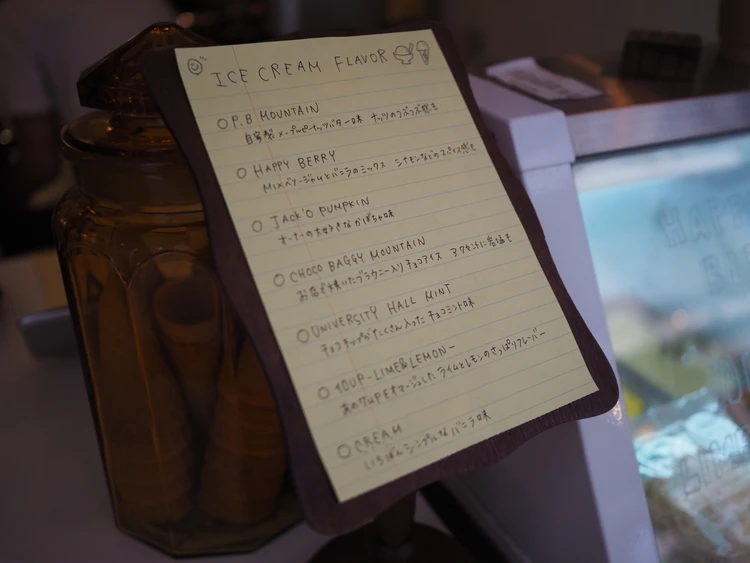 ICE CREAM FLAVOR
P.B MOUNTAIN
自家製 メープルピーナッツバター味 ナッツのつぶつぶ感も
HAPPY BERRY
MIXベリージャムとバニラのミックス シナモンなどのスパイス感も
JACK'O PUMPKIN
オーナーの大好きなかぼちゃ味
CHOCO BAGGY MOUNTAIN
お店で焼いたブラウニー入りチョコアイス アクセントに岩塩を
UNIVERSITY HALL MINT
チョコチップがたくさん入った チョコミント味
10UP-LIME&LEMON-
あの7UPをオマージュした ライムとレモンのさっぱりフレーバー
CREAM
いちばんシンプルな バニラ味